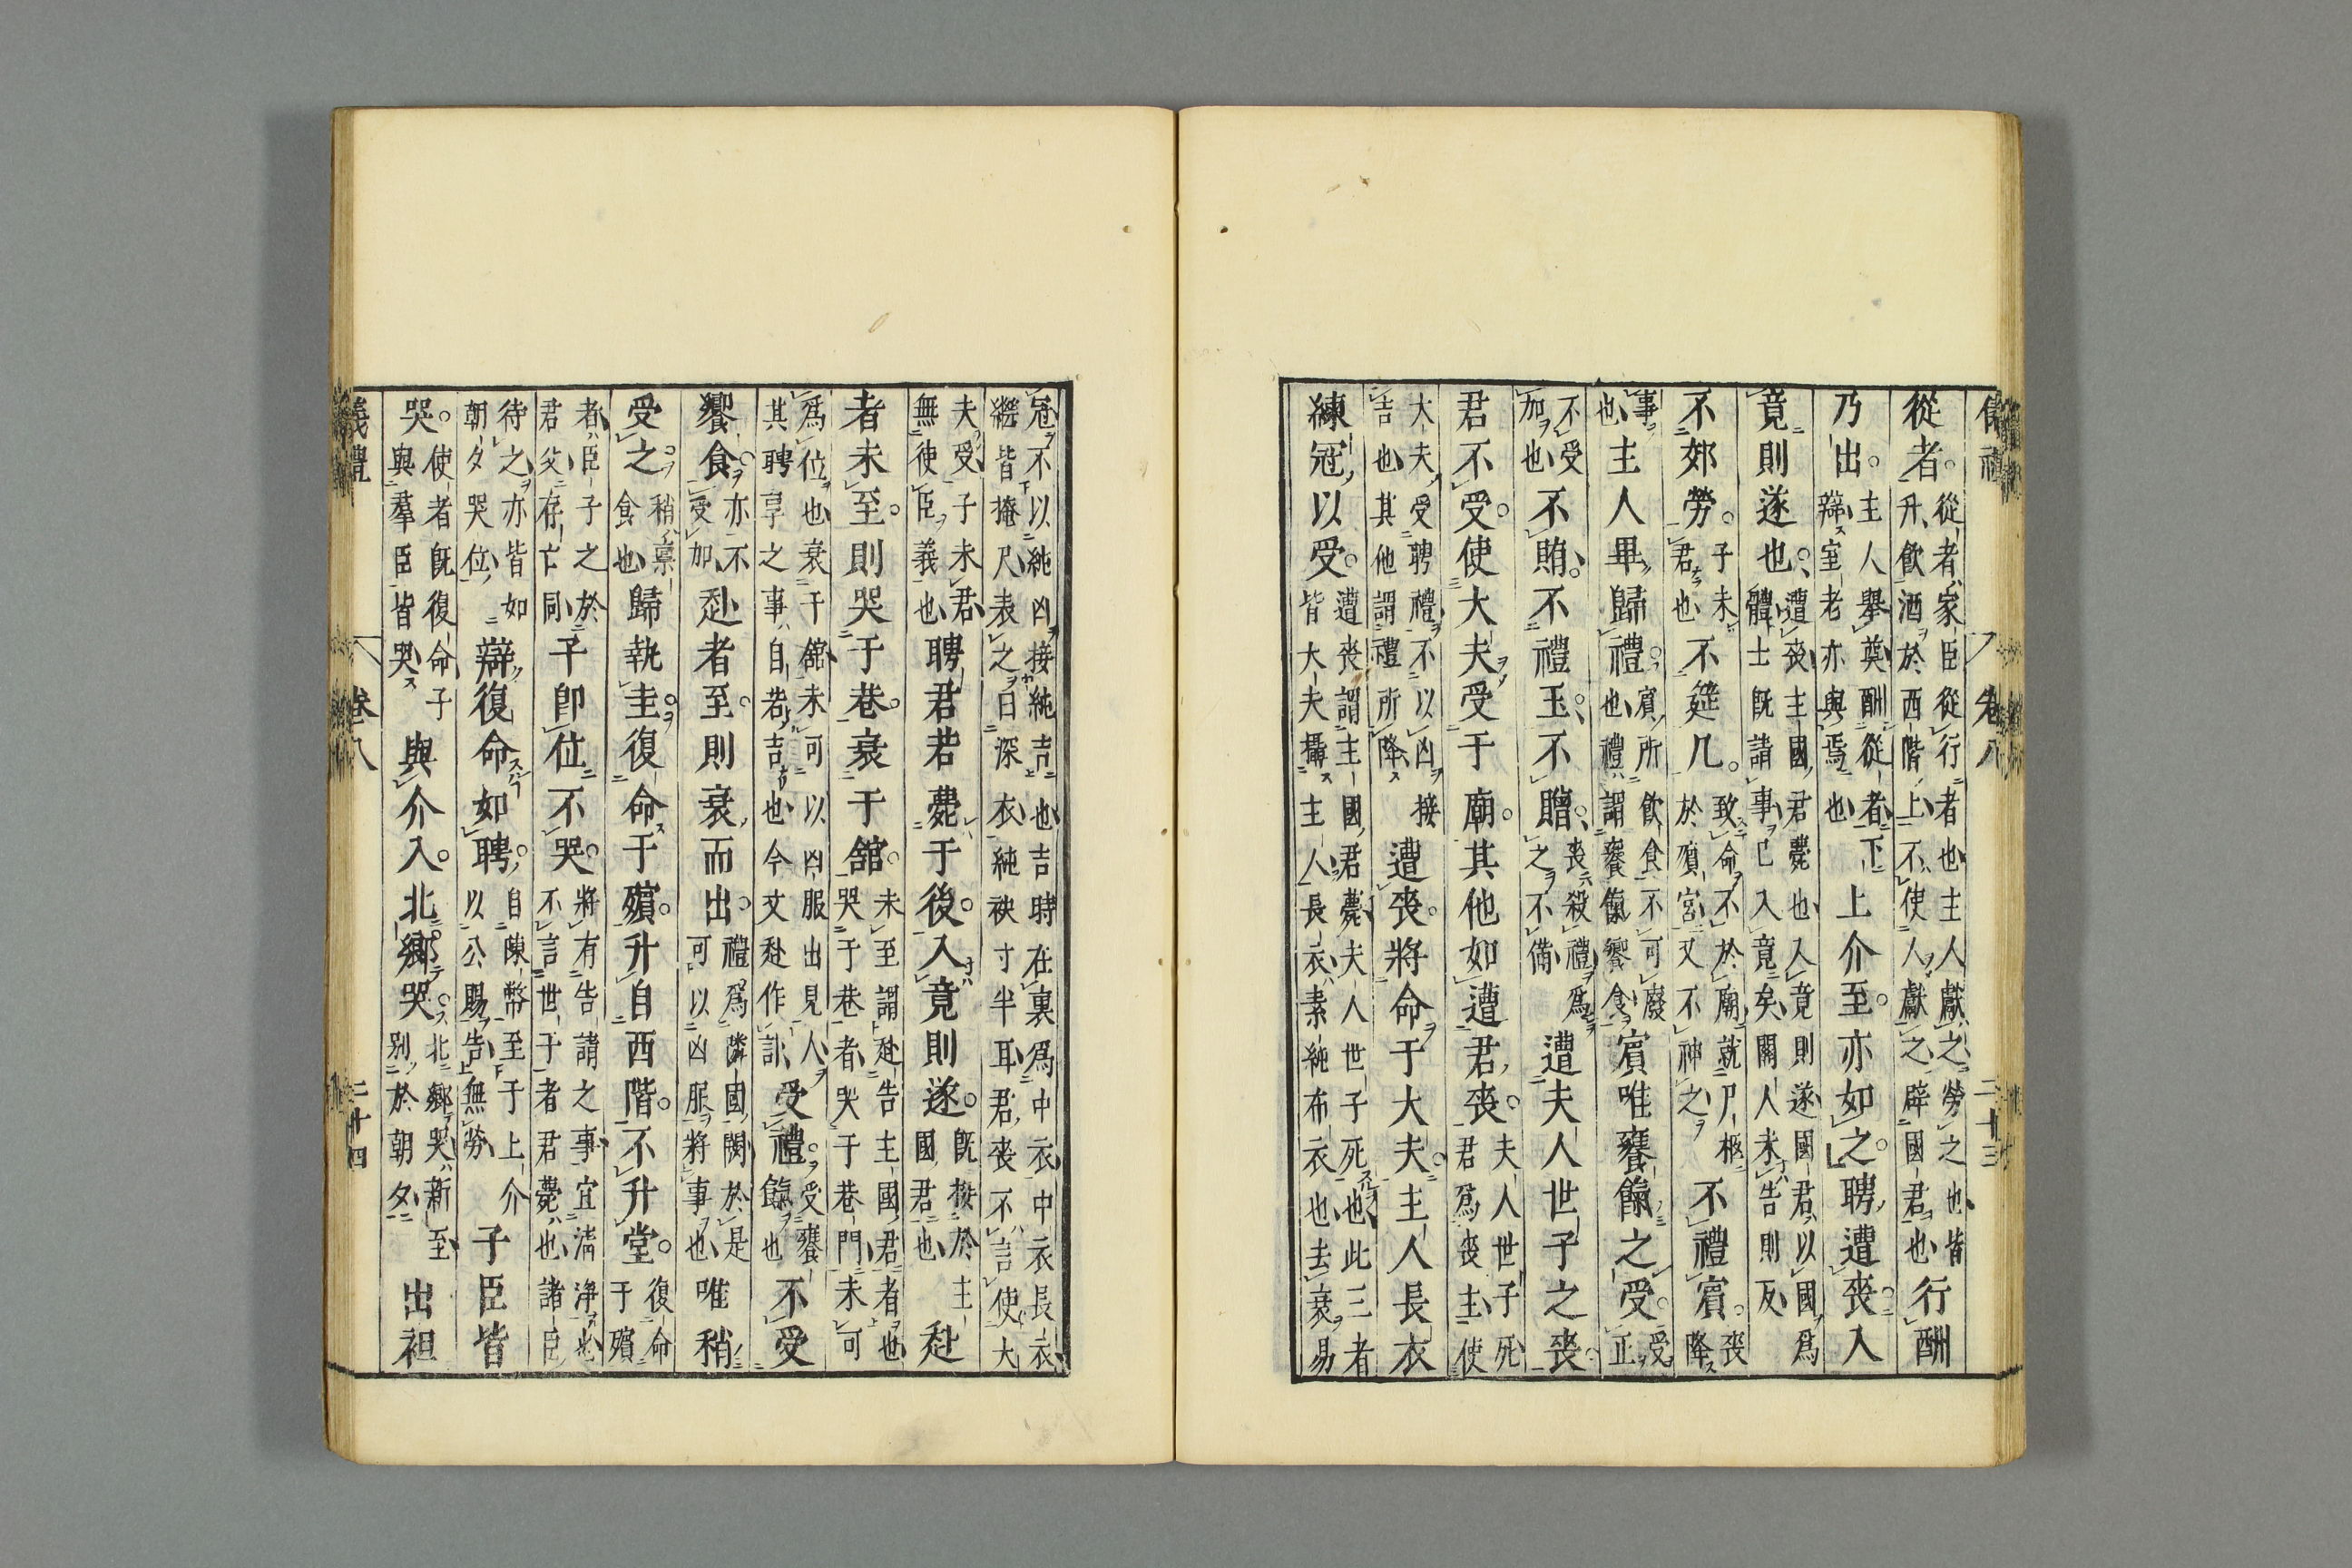 儀禮 卷八 二十三
從者從者家臣從行者也主人獻之勞之也皆升飲酒於西階上不使人獻之辟國君也行酬
乃出主人舉奠酬從者下辯室老亦與焉也上介至亦如之聘遭喪入
竟則遂也遭喪主國君薨也入竟則遂國君以國爲體士既請事已入竟矣關人未告則反
不郊勞子未君也不筵几致命不於廟就尸柩於殯宮又不神之不禮賓喪降
事也主人畢歸禮賓所飲食不可廢也禮謂饔餼饗食賓唯饔餼之受受正
不受加也不賄不禮玉不贈喪殺禮爲之不備遭夫人世子之喪
君不受使大夫受于廟其他如遭君喪夫人世子死君爲喪主使
大夫受聘禮不以凶接吉也其他謂禮所降遭喪將命于大夫主人長衣
練冠以受遭喪謂主國君薨夫人世子死也此三者皆大夫攝主人長衣素純布衣也去衰易
冠不以純凶接純吉也吉時在裏爲中衣中衣長衣繼皆掩尺表之曰深衣純袂寸半耳君喪不言使大
夫受子未君無使臣義也聘君若薨于後入竟則遂既接於主國君也赴
者未至則哭于巷衰于舘未至謂赴告主國君者也哭于巷者哭于巷門未可
爲位也衰于舘未可以凶服出見人其聘享之事自若吉也今文赴作訃受禮受饔餼也不受
饗食亦不受加赴者至則衰而出禮爲隣國闋於是可以凶服將事也唯稍
受之稍稟食也歸執圭復命于殯升自西階不升堂復命于殯
者臣子之於君父存亡同子卽位不哭將有告請之事宜清淨也不言世于者君薨也諸臣
待之亦皆如朝夕哭位辯復命如聘自陳幣至于上介以公賜告無勞子臣皆
哭使者既復命子與羣臣皆哭與介入北鄉哭北鄉哭新至別於朝夕出袒
儀禮 卷八 二十四